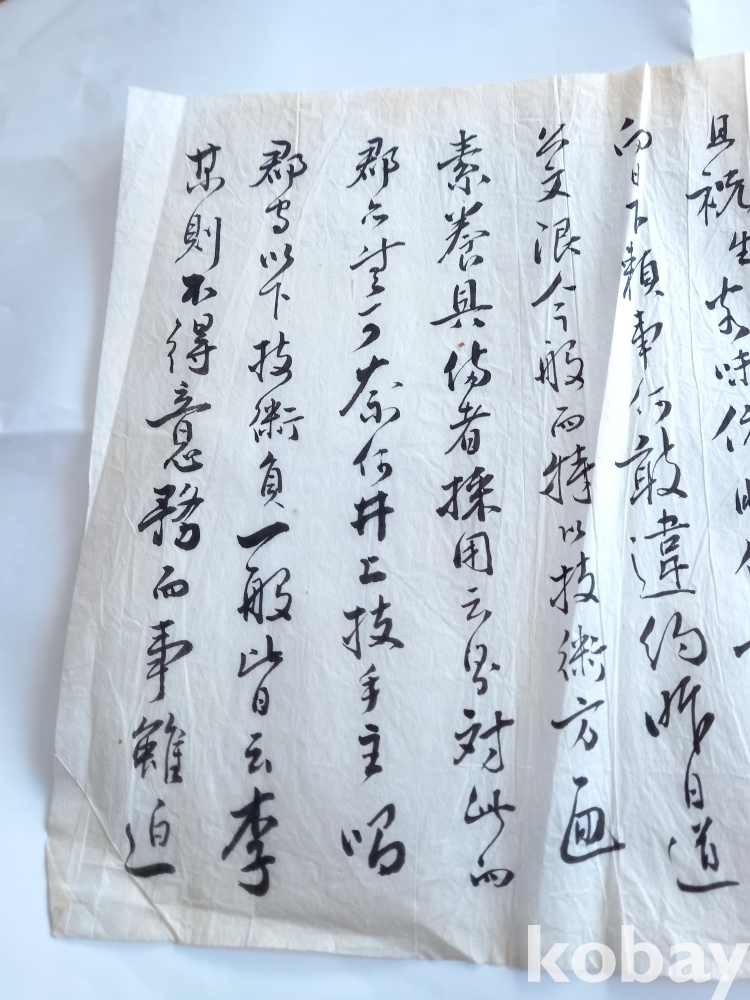 且 祝生 味
向日下賴事何敢違約昨日道
公文 今般而特以技術方面
素養具備者採用云 對此而
郡 可奈何井上技手主唱
郡守以下技術員一般皆云李
某則不得意 務而事雖迫
kobay